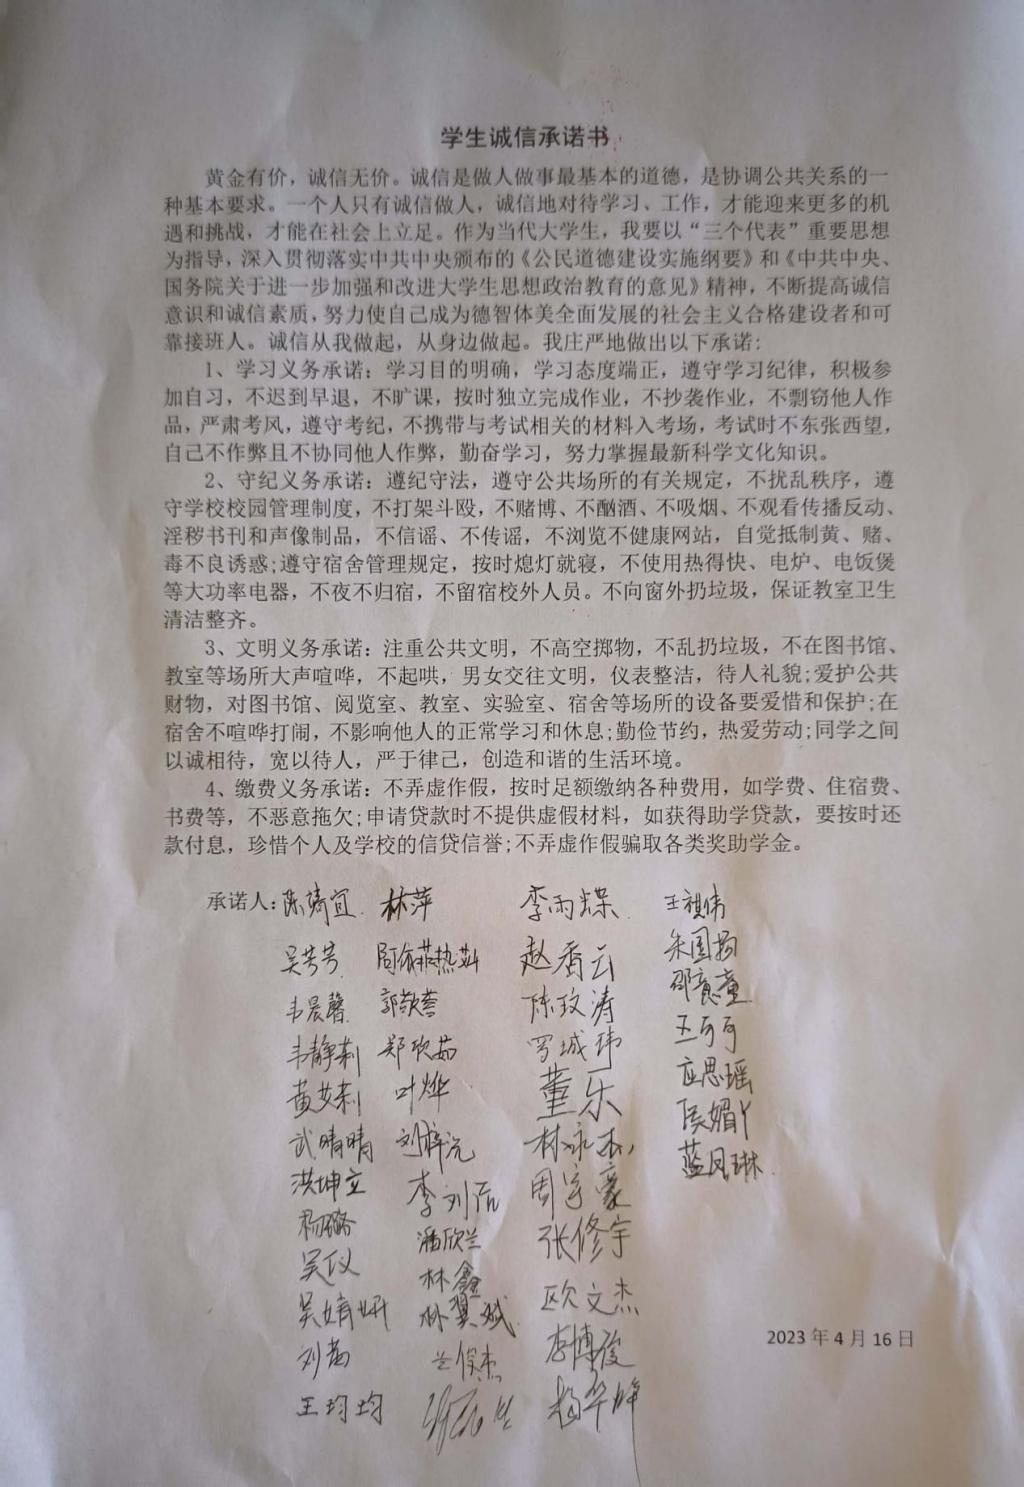 学生诚信承诺书
黄金有价，诚信无价。诚信是做人做事最基本的道德，是协调公共关系的一
种基本要求。一个人只有诚信做人，诚信地对待学习、工作，才能迎来更多的机
遇和挑战，才能在社会上立足。作为当代大学生，我要以“三个代表”重要思想
为指导，深入贯彻落实中共中央颁布的《公民道德建设实施纲要》和《中共中央、
国务院关于进一步加强和改进大学生思想政治教育的意见》精神，不断提高诚信
意识和诚信素质，努力使自己成为德智体美全面发展的社会主义合格建设者和可
靠接班人。诚信从我做起，从身边做起。我庄严地做出以下承诺:
1、学习义务承诺：学习目的明确，学习态度端正，遵守学习纪律，积极参
加自习，不迟到早退，不旷课，按时独立完成作业，不抄袭作业，不剽窃他人作
品，严肃考风，遵守考纪，不携带与考试相关的材料入考场，考试时不东张西望，
自己不作弊且不协同他人作弊，勤奋学习，努力掌握最新科学文化知识。
2、守纪义务承诺：遵纪守法，遵守公共场所的有关规定，不扰乱秩序，遵
守学校校园管理制度，不打架斗殴，不赌博、不酗酒、不吸烟、不观看传播反动、
淫秽书刊和声像制品，不信谣、不传谣，不浏览不健康网站，自觉抵制黄、赌、
毒不良诱惑;遵守宿舍管理规定，按时熄灯就寝，不使用热得快、电炉、电饭煲
等大功率电器，不夜不归宿，不留宿校外人员。不向窗外扔垃圾，保证教室卫生
清洁整齐。
3、文明义务承诺：注重公共文明，不高空掷物，不乱扔垃圾，不在图书馆、
教室等场所大声喧哗，不起哄，男女交往文明，仪表整洁，待人礼貌;爱护公共
财物，对图书馆、阅览室、教室、实验室、宿舍等场所的设备要爱惜和保护;在
宿舍不喧哗打闹，不影响他人的正常学习和休息;勤俭节约，热爱劳动;同学之间
以诚相待，宽以待人，严于律己，创造和谐的生活环境。
4、缴费义务承诺：不弄虚作假，按时足额缴纳各种费用，如学费、住宿费、
书费等，不恶意拖欠;申请贷款时不提供虚假材料，如获得助学贷款，要按时还
款付息，珍惜个人及学校的信贷信誉;不弄虚作假骗取各类奖助学金。
承诺人：陈靖宜 林萍 李雨蝶 王祺伟
吴芳芳 赵香云
韦晨馨 陈玟涛 邵意童
韦静莉 郑欣茹 罗城玮 王可可
黄艾莉 叶烨 董乐 应思瑶
武晴晴 林永杰
洪坤立 周宇豪 蓝凤琳
杨璐 潘欣兰 张修宇
吴仪 林鑫 欧文杰
吴婧妍 林翼斌 李博俊
刘茜 兰俊杰
王均均 杨华烽
2023 年 4 月 16 日